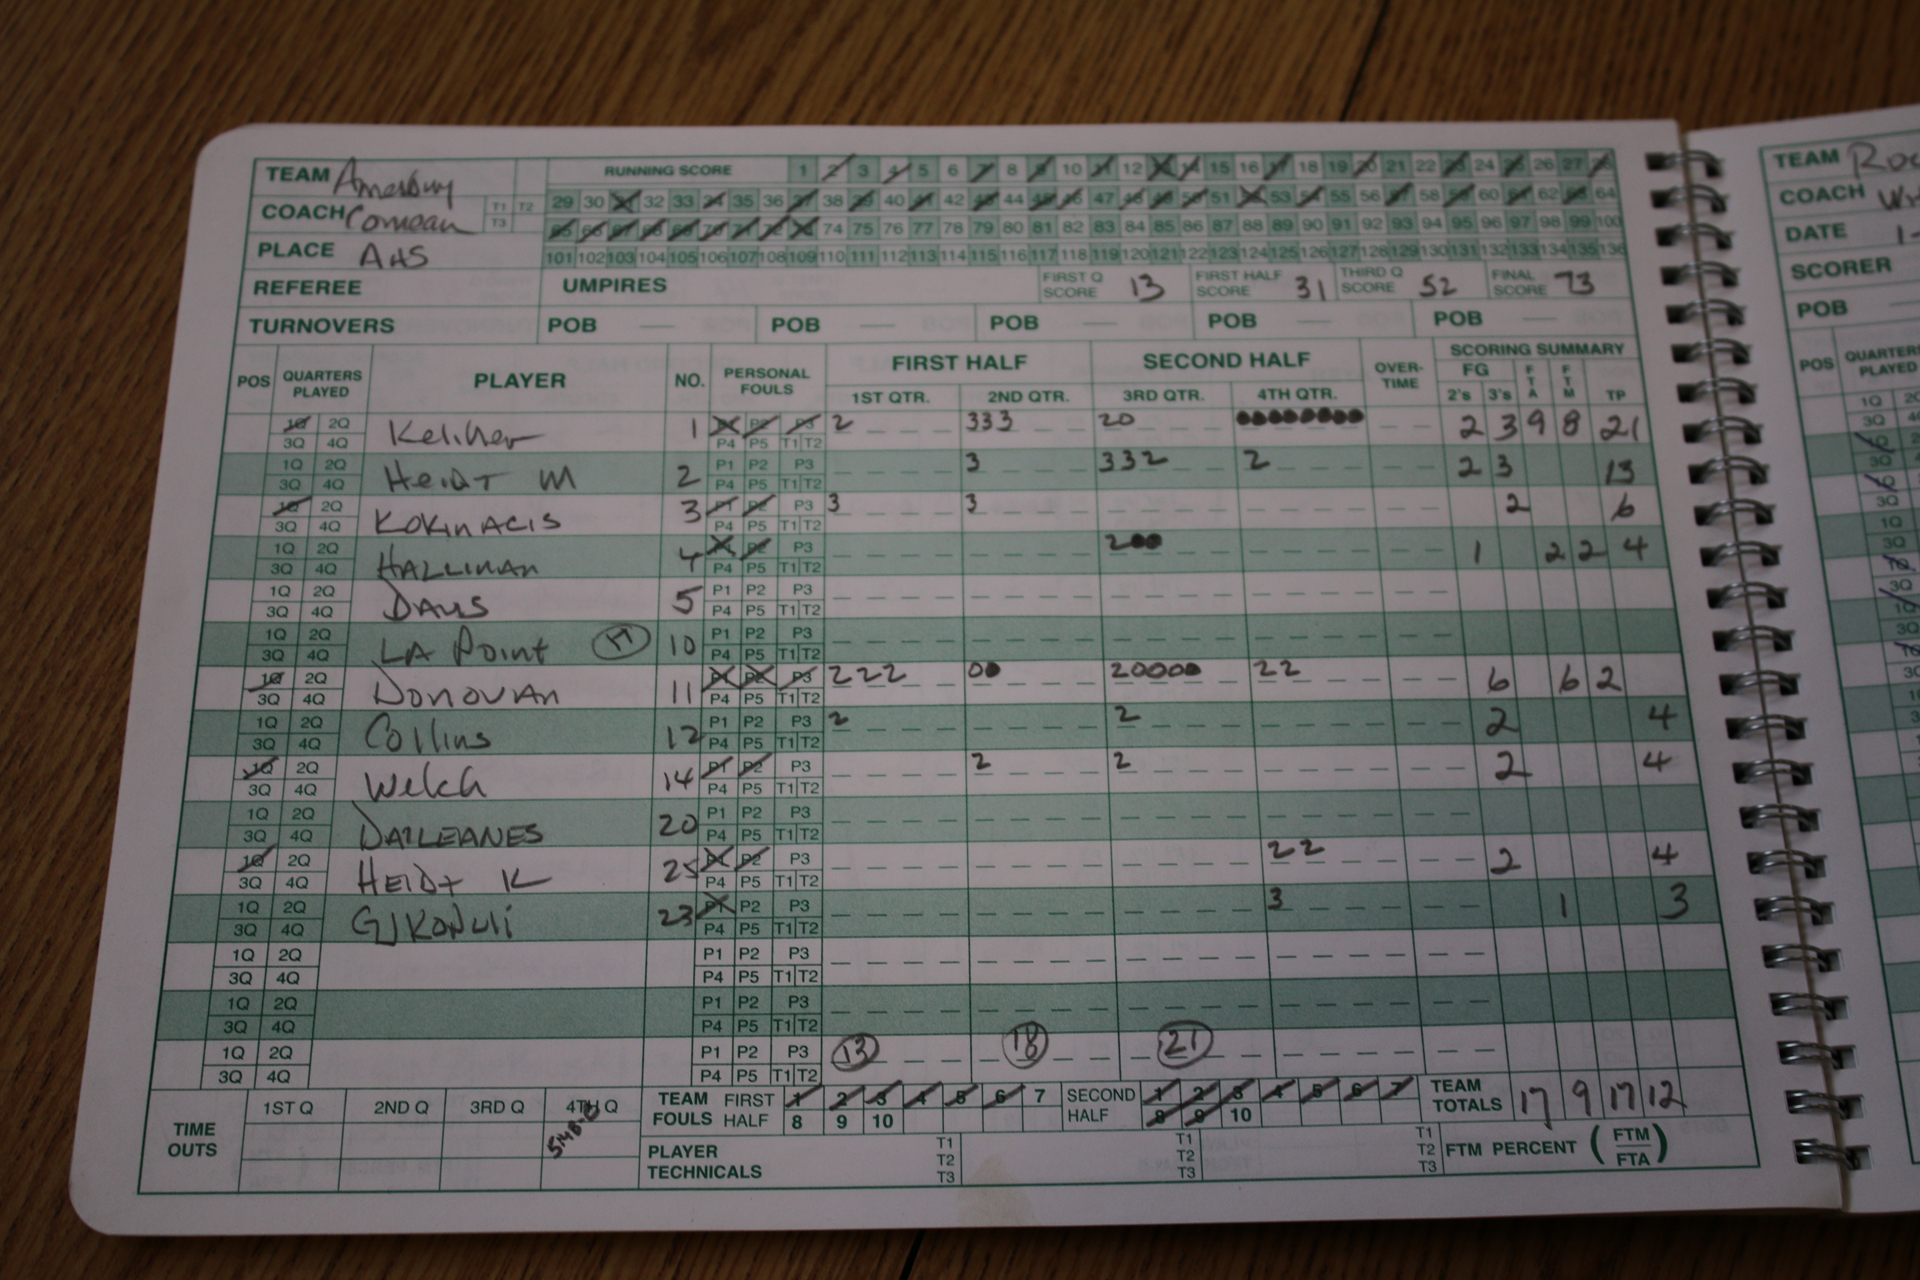 TEAM Amesbury RUNNING SCORE 1 2 3 4 5 6 7 8 9 10 11 12 13 14 15 16 17 18 19 20 21 22 23 24 25 26 27 28
COACH Comeau T1 T2 T3 29 30 31 32 33 34 35 36 37 38 39 40 41 42 43 44 45 46 47 48 49 50 51 52 53 54 55 56 57 58 59 60 61 62 63 64
65 66 67 68 69 70 71 72 73 74 75 76 77 78 79 80 81 82 83 84 85 86 87 88 89 90 91 92 93 94 95 96 97 98 99 100
PLACE AHS 101 102 103 104 105 106 107 108 109 110 111 112 113 114 115 116 117 118 119 120 121 122 123 124 125 126 127 128 129 130 131 132 133 134 135 136
REFEREE UMPIRES FIRST Q SCORE 13 FIRST HALF SCORE 31 THIRD Q SCORE 52 FINAL SCORE 73
TURNOVERS POB — POB — POB — POB — POB —
POS QUARTERS PLAYED PLAYER NO. PERSONAL FOULS FIRST HALF SECOND HALF OVER-TIME SCORING SUMMARY
1ST QTR. 2ND QTR. 3RD QTR. 4TH QTR. FG 2's 3's FTA FTM TP
1Q 2Q 3Q 4Q Keliher 1 P1 P2 P3 P4 P5 T1 T2 2 333 20 2 3 9 8 21
1Q 2Q 3Q 4Q Heidt M 2 P1 P2 P3 P4 P5 T1 T2 3 332 2 2 3 13
1Q 2Q 3Q 4Q KOKINACIS 3 P1 P2 P3 P4 P5 T1 T2 3 3 2 6
1Q 2Q 3Q 4Q HALLINAN 4 P1 P2 P3 P4 P5 T1 T2 2 1 2 2 4
1Q 2Q 3Q 4Q 5 P1 P2 P3 P4 P5 T1 T2
1Q 2Q 3Q 4Q LA Point 10 P1 P2 P3 P4 P5 T1 T2
1Q 2Q 3Q 4Q Donovan 11 P1 P2 P3 P4 P5 T1 T2 222 0 2000 22 6 6 2
1Q 2Q 3Q 4Q Collins 12 P1 P2 P3 P4 P5 T1 T2 2 2 2 4
1Q 2Q 3Q 4Q Welch 14 P1 P2 P3 P4 P5 T1 T2 2 2 2 4
1Q 2Q 3Q 4Q DAILEANES 20 P1 P2 P3 P4 P5 T1 T2
1Q 2Q 3Q 4Q HEIDT K 25 P1 P2 P3 P4 P5 T1 T2 22 2 4
1Q 2Q 3Q 4Q GJKONLI 23 P1 P2 P3 P4 P5 T1 T2 3 1 3
1Q 2Q 3Q 4Q P1 P2 P3 P4 P5 T1 T2
1Q 2Q 3Q 4Q P1 P2 P3 P4 P5 T1 T2
1Q 2Q 3Q 4Q P1 P2 P3 P4 P5 T1 T2 13 18 21
TIME OUTS 1ST Q 2ND Q 3RD Q 4TH Q
TEAM FOULS FIRST HALF 1 2 3 4 5 6 7 8 9 10 SECOND HALF 1 2 3 4 5 6 7 8 9 10 TEAM TOTALS 17 9 17 12
PLAYER TECHNICALS T1 T2 T3 T1 T2 T3 T1 T2 T3 FTM PERCENT (FTM FTA)
TEAM
COACH
DATE
SCORER
POB
POS QUARTERS PLAYED